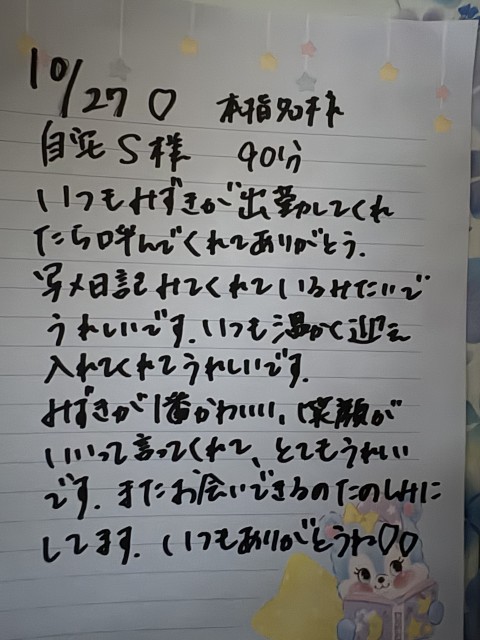 10/27♡ 本指名様
自宅S様 90分
いつもみずきが出勤してくれ
たら呼んでくれてありがとう.
写メ日記みてくれているみたいで
うれしいです.いつも温かく迎え
入れてくれてうれしいです.
みずきが1番かわいい,笑顔が
いいって言ってくれて、とてもうれしい
です.またお会いできるのたのしみに
してます.いつもありがとうね♡♡